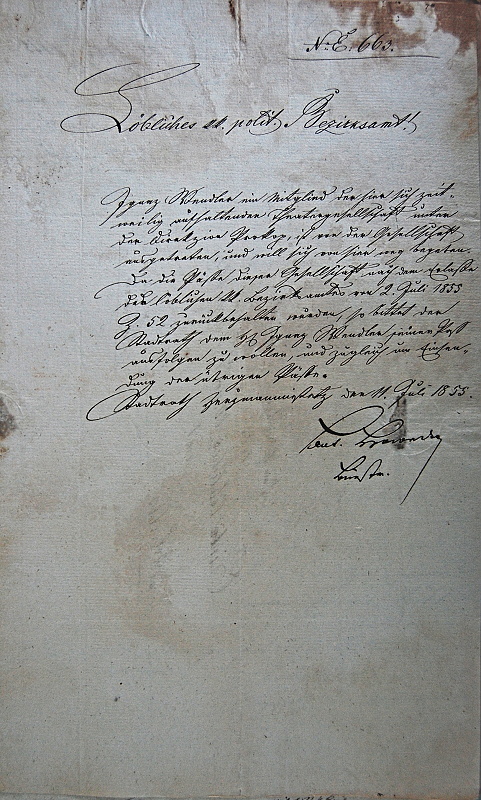 N: E: 663.
Löbliches kk. polit. Bezirksamt!
Ignaz Wendler ein Mitglied der hier sich zeit-
weilig aufhaltenden Theatergesellschaft unter
der Direkzion Prokop, ist von der Gesellschaft
ausgetreten, und will sich von hier weg begeben.
Da die Päße dieser Gesellschaft nach dem Erlaße
des löblichen kk. Bezirksamtes vom 2 Juli 1855
Z. 52 zurückbehalten wurden, so bittet der
Stadtrath dem Ignaz Wendler seinen Paß
ausfolgen zu wollen, und zugleich um Einsen-
dung der übrigen Päße.
Stadtrath den 11. Juli 1855.